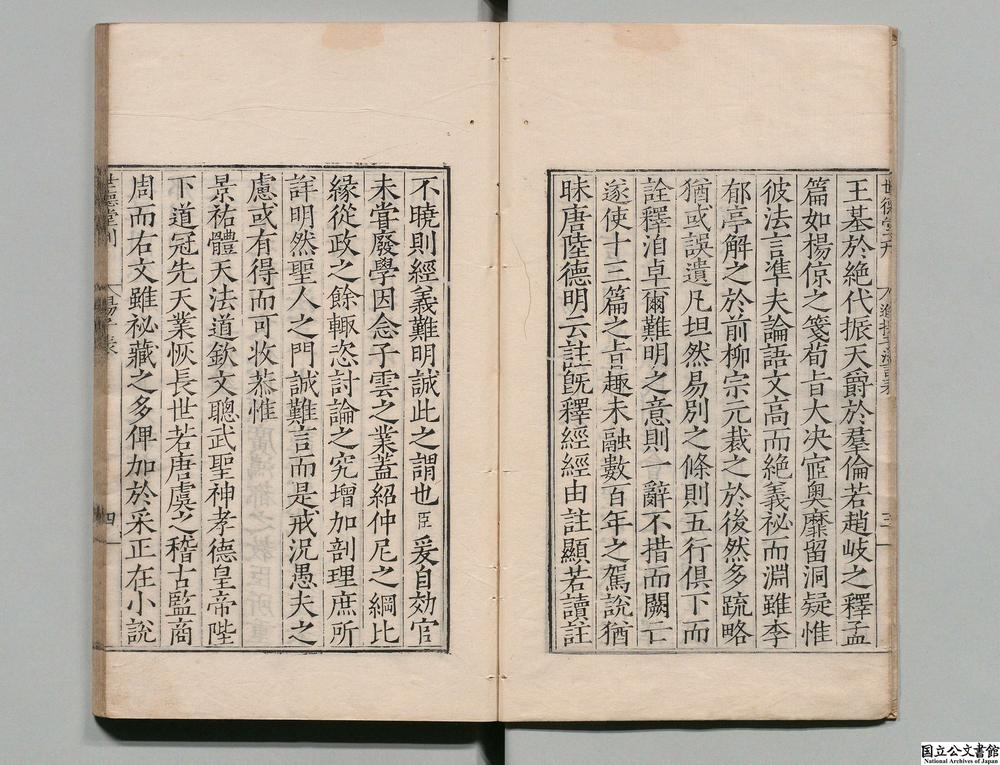 王基於絶代振天爵於羣倫若趙岐之釋孟
篇如楊倞之箋荀旨大决窔奥靡留洞疑惟
彼法言準夫論語文高而絶義祕而淵雖李
郁亭解之於前柳宗元裁之於後然多疏略
猶或誤遺凡坦然易別之條則五行俱下而
詮釋洎卓爾難明之意則一辭不措而闕亡
遂使十三篇之旨趣未融數百年之駕說猶
昧唐陸德明云註旣釋經經由註顯若讀註
不曉則經義難明誠此之謂也臣爰自効官
未嘗廢學因念子雲之業蓋紹仲尼之綱比
緣從政之餘輙恣討論之究增加剖理庶所
詳明然聖人之門誠難言而是戒況愚夫之
慮或有得而可收恭惟
景祐體天法道欽文聰武聖神孝德皇帝陛
下道冠先天業恢長世若唐虞之稽古監商
周而右文雖祕藏之多俾加於采正在小說
世德堂刊
四
三
国立公文書館
National Archives of Japan